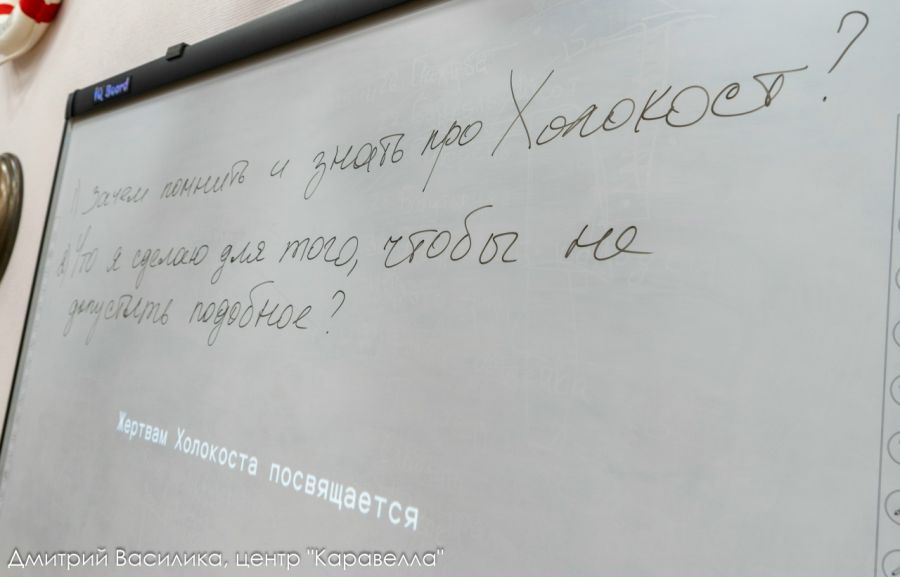 IQ Board
1) Зачем помнить и знать про Холокост?
2) Что я сделаю для того, чтобы не
допустить подобное?
Жертвам Холокоста посвящается
Дмитрий Василика, центр "Каравелла"